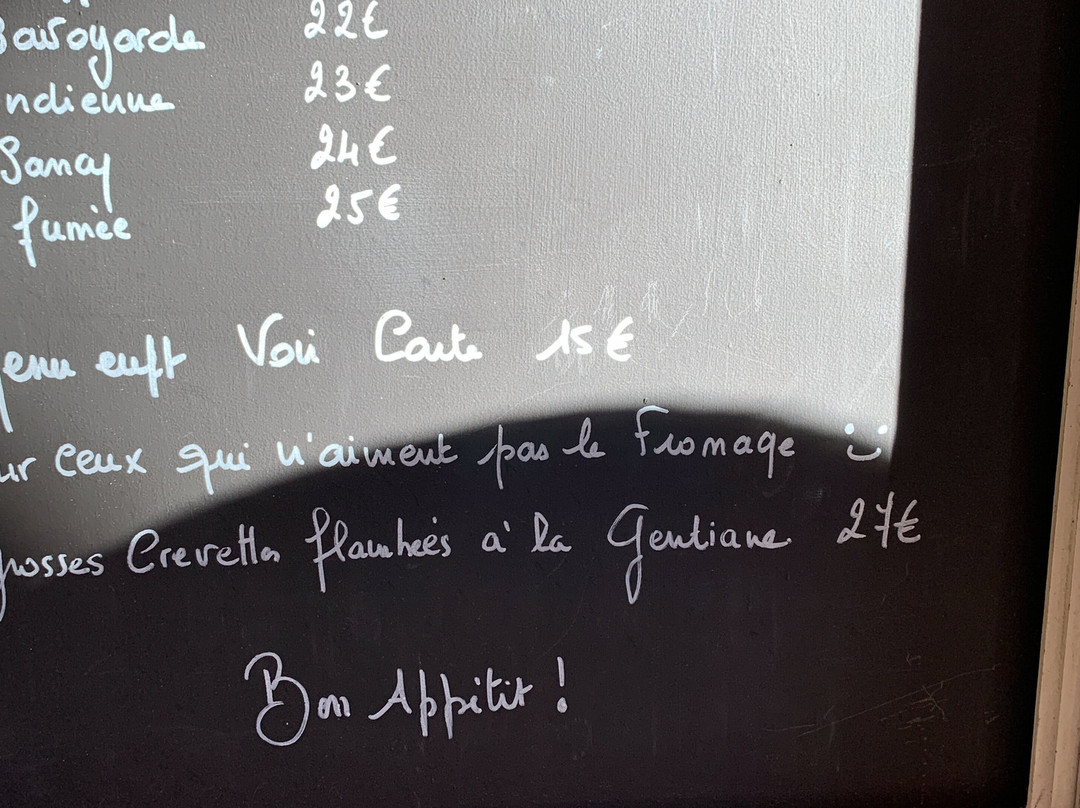 Savoyarde 22€
ndienne 23€
Sancy 24€
fumée 25€
enu enft Voir Carte 15€
ur ceux qui n'aiment pas le Fromage :)
Grosses Crevettes flambées à la Gentiane 27€
Bon Appétit !